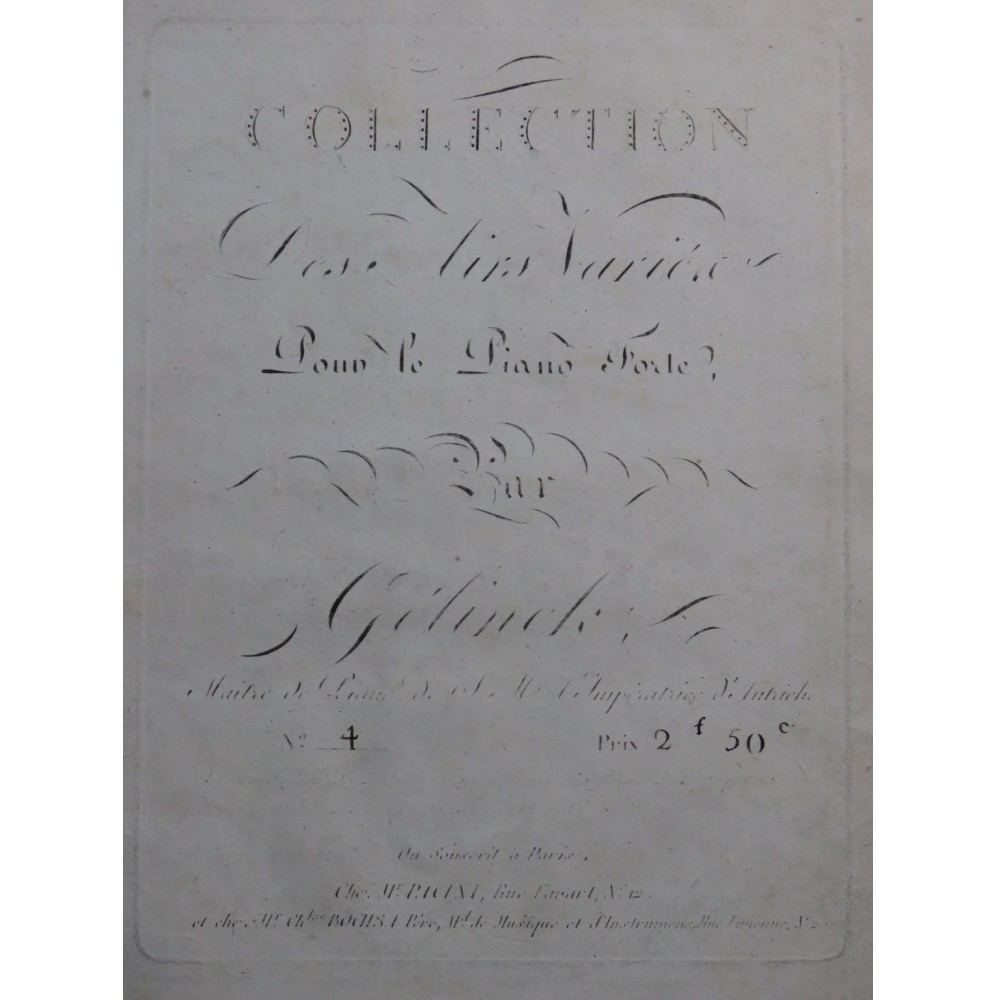 COLLECTION
Des Airs Variés
Pour le Piano Forte,
Par
Gélinek
Maitre de Piano de S. M. l'Impératrice d'Autriche
N.º 4 Prix 2 f 50 c
On Souscrit à Paris,
Chez M.r PACINI, Rue Favart, N.º 12.
et chez M.r Ch.les BOCHSA Père, M.d de Musique et d'Instrumens, Rue Vivienne, N.º